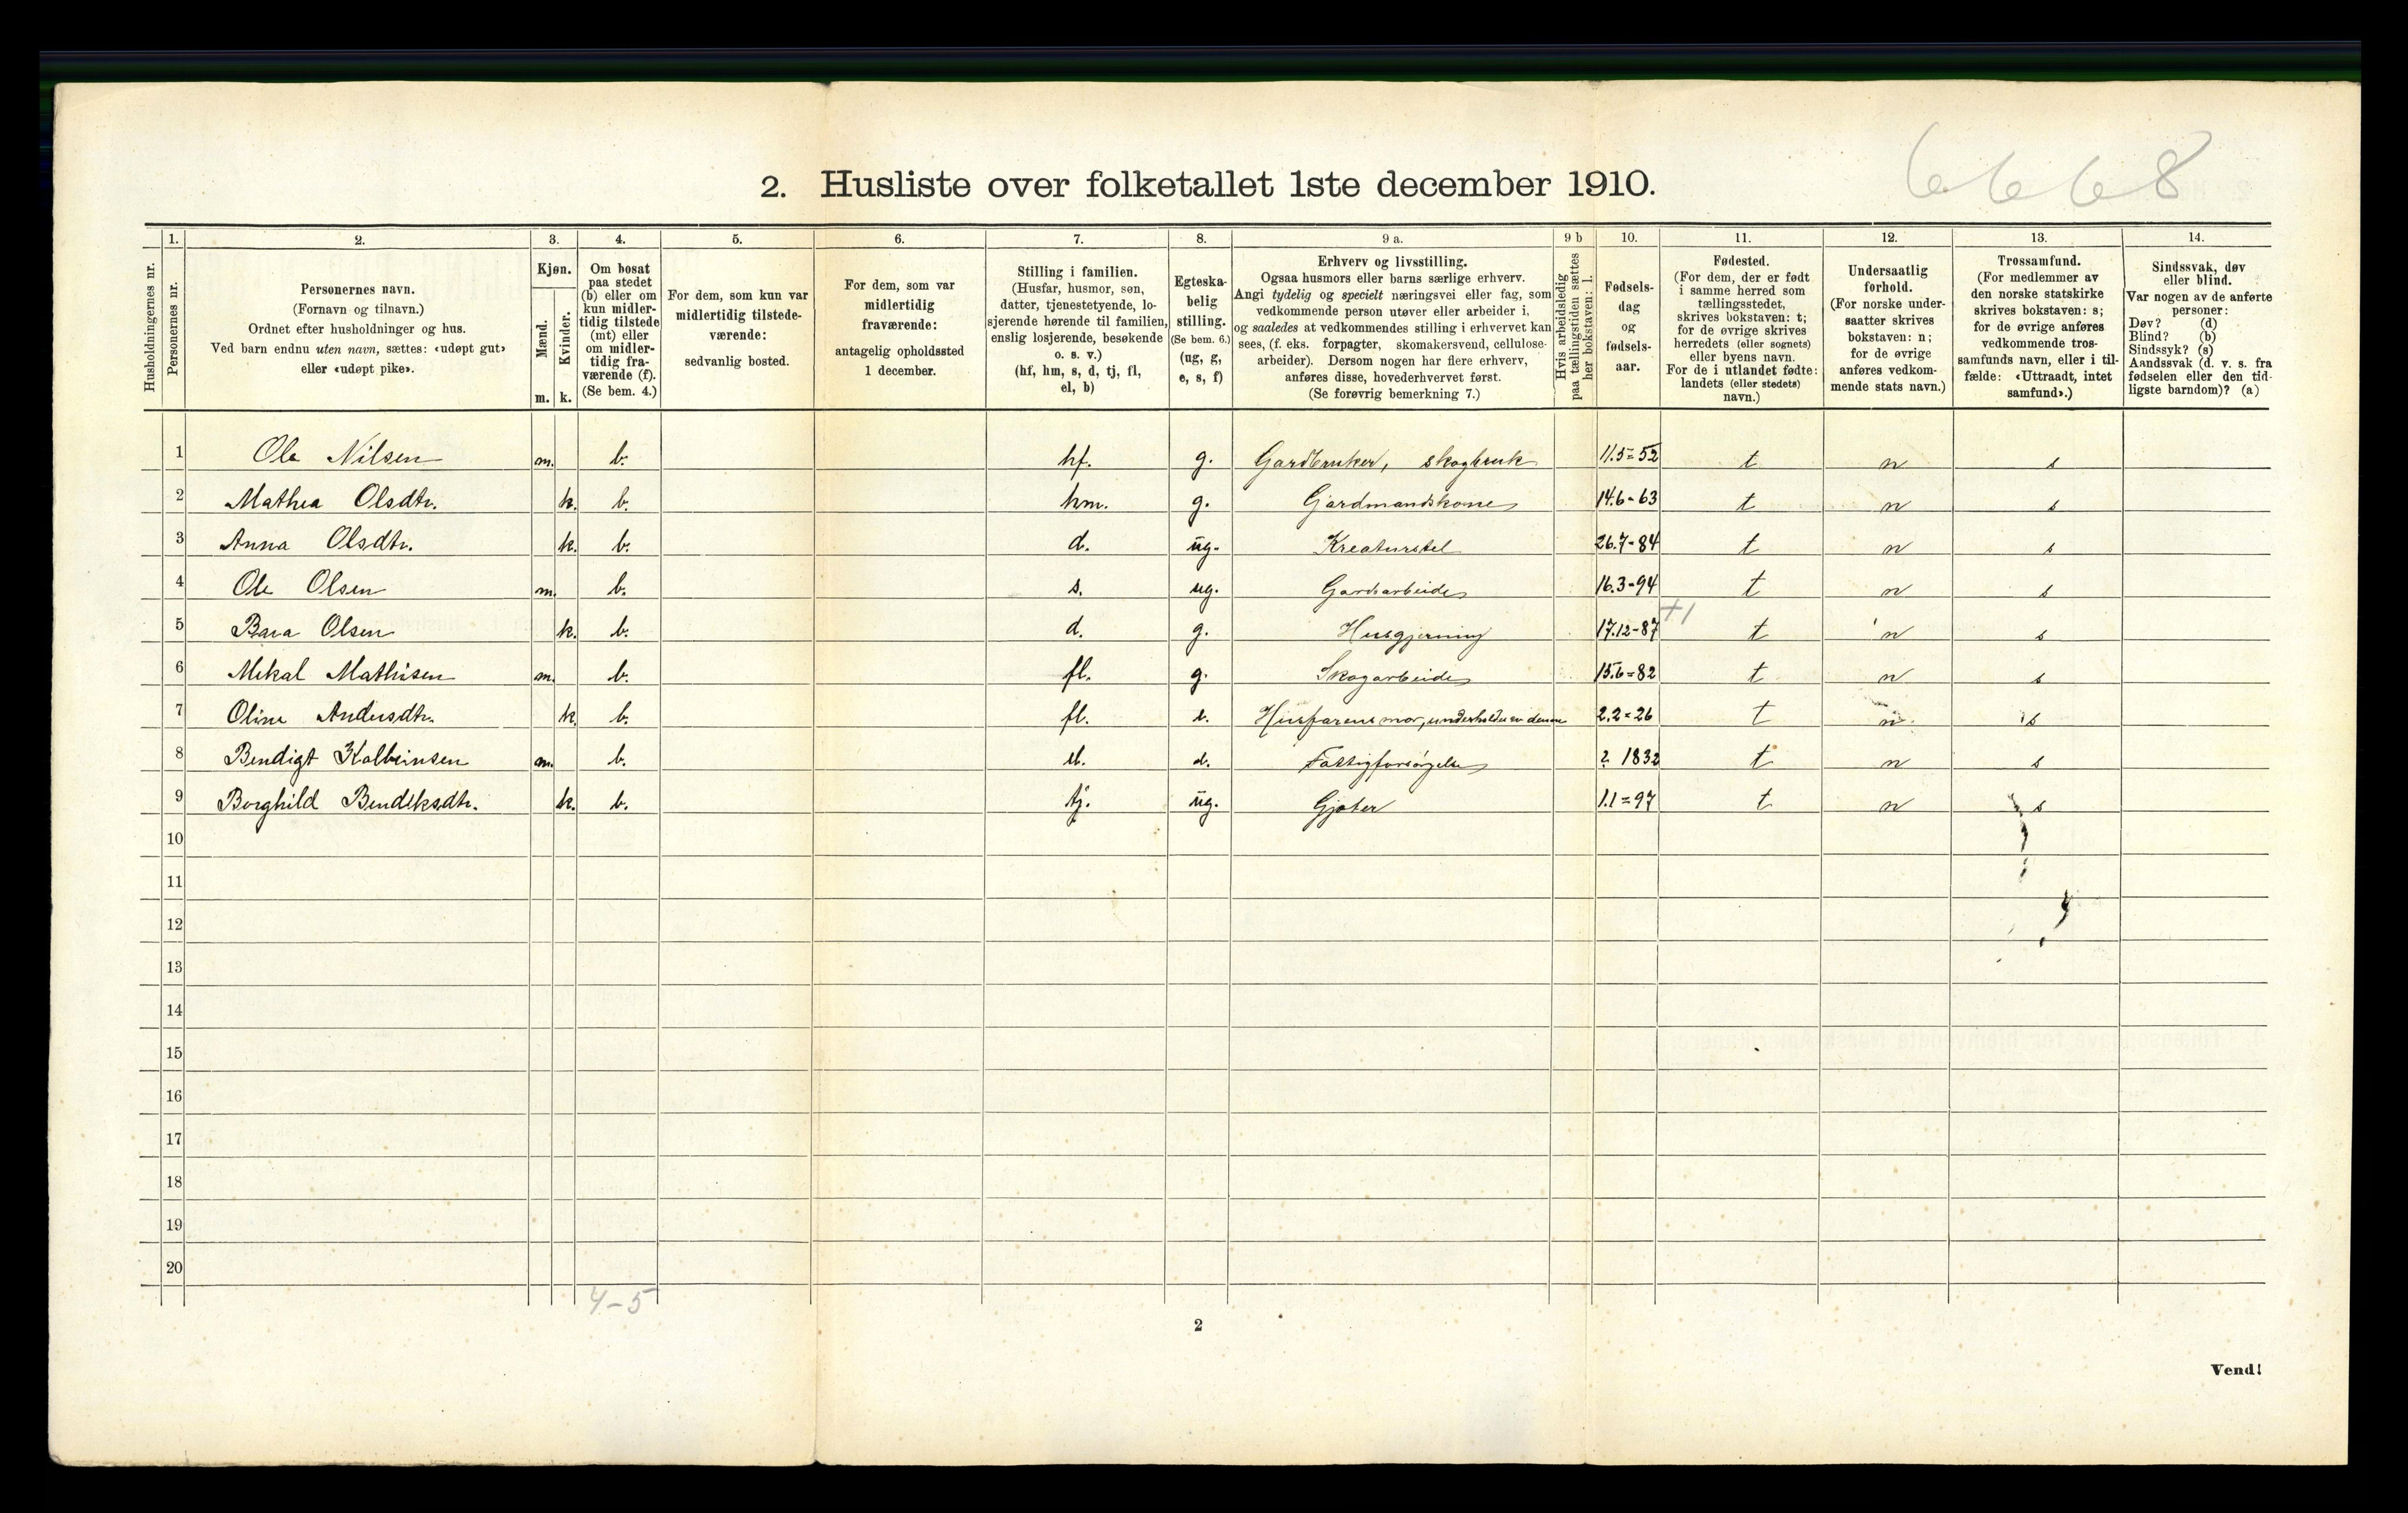 2. Husliste over folketallet 1ste december 1910.
6668
1. 2. 3. 4. 5. 6. 7. 8. 9 a. 9 b 10. 11. 12. 13. 14.
Husholdningernes nr.
Personernes nr.
Personernes navn.
(Fornavn og tilnavn.)
Ordnet efter husholdninger og hus.
Ved barn endnu uten navn, sættes: «udøpt gut»
eller «udøpt pike».
Kjøn.
Mænd.
Kvinder.
m. k.
Om bosat
paa stedet
(b) eller om
kun midler-
tidig tilstede
(mt) eller
om midler-
tidig fra-
værende (f).
(Se bem. 4.)
For dem, som kun var
midlertidig tilstede-
værende:
sedvanlig bosted.
For dem, som var
midlertidig
fraværende:
antagelig opholdssted
1 december.
Stilling i familien.
(Husfar, husmor, søn,
datter, tjenestetyende, lo-
sjerende hørende til familien,
enslig losjerende, besøkende
o. s. v.)
(hf, hm, s, d, tj, fl,
el, b)
Egteska-
belig
stilling.
(Se bem. 6.)
(ug, g,
e, s, f)
Erhverv og livsstilling.
Ogsaa husmors eller barns særlige erhverv.
Angi tydelig og specielt næringsvei eller fag, som
vedkommende person utøver eller arbeider i,
og saaledes at vedkommendes stilling i erhvervet kan
sees, (f. eks. forpagter, skomakersvend, cellulose-
arbeider). Dersom nogen har flere erhverv,
anføres disse, hovederhvervet først.
(Se forøvrig bemerkning 7.)
Hvis arbeidsledig
paa tællingstiden sættes
her bokstaven: l.
Fødsels-
dag
og
fødsels-
aar.
Fødested.
(For dem, der er født
i samme herred som
tællingsstedet,
skrives bokstaven: t;
for de øvrige skrives
herredets (eller sognets)
eller byens navn.
For de i utlandet fødte:
landets (eller stedets)
navn.)
Undersaatlig
forhold.
(For norske under-
saatter skrives
bokstaven: n;
for de øvrige
anføres vedkom-
mende stats navn.)
Trossamfund.
(For medlemmer av
den norske statskirke
skrives bokstaven: s;
for de øvrige anføres
vedkommende tros-
samfunds navn, eller i til-
fælde: «Uttraadt, intet
samfund».)
Sindssvak, døv
eller blind.
Var nogen av de anførte
personer:
Døv? (d)
Blind? (b)
Sindssyk? (s)
Aandssvak (d. v. s. fra
fødselen eller den tid-
ligste barndom)? (a)
1 Ole Nilsen m. b. hf. g. Gardbruker, skogbruk 11.5=52 t n s
2 Mathea Olsdtr. k. b. hm. g. Gardmandskone 14.6-63 t n s
3 Anna Olsdtr. k. b. d. ug. Kreaturstel 26.7-84 t n s
4 Ole Olsen m. b. s. ug. Gardsarbeide 16.3-94 t n s
+1
5 Bara Olsen k. b. d. g. Husgjerning 17.12-87 t n s
6 Mekal Mathisen m. b. fl. g. Skogarbeide 15.6=82 t n s
7 Oline Andersdtr. k. b. fl. e. Husfarens mor, underholdes av denne 2.2=26 t n s
8 Bendigt Kolbeinsen m. b. el. e. Fattigforsørgelse ? 1832 t n s
9 Borghild Bendiksdtr. k. b. tj. ug. Gjæter 1.1=97 t n s
10
11
12
13
14
15
16
17
18
19
20
4-5
2
Vend!